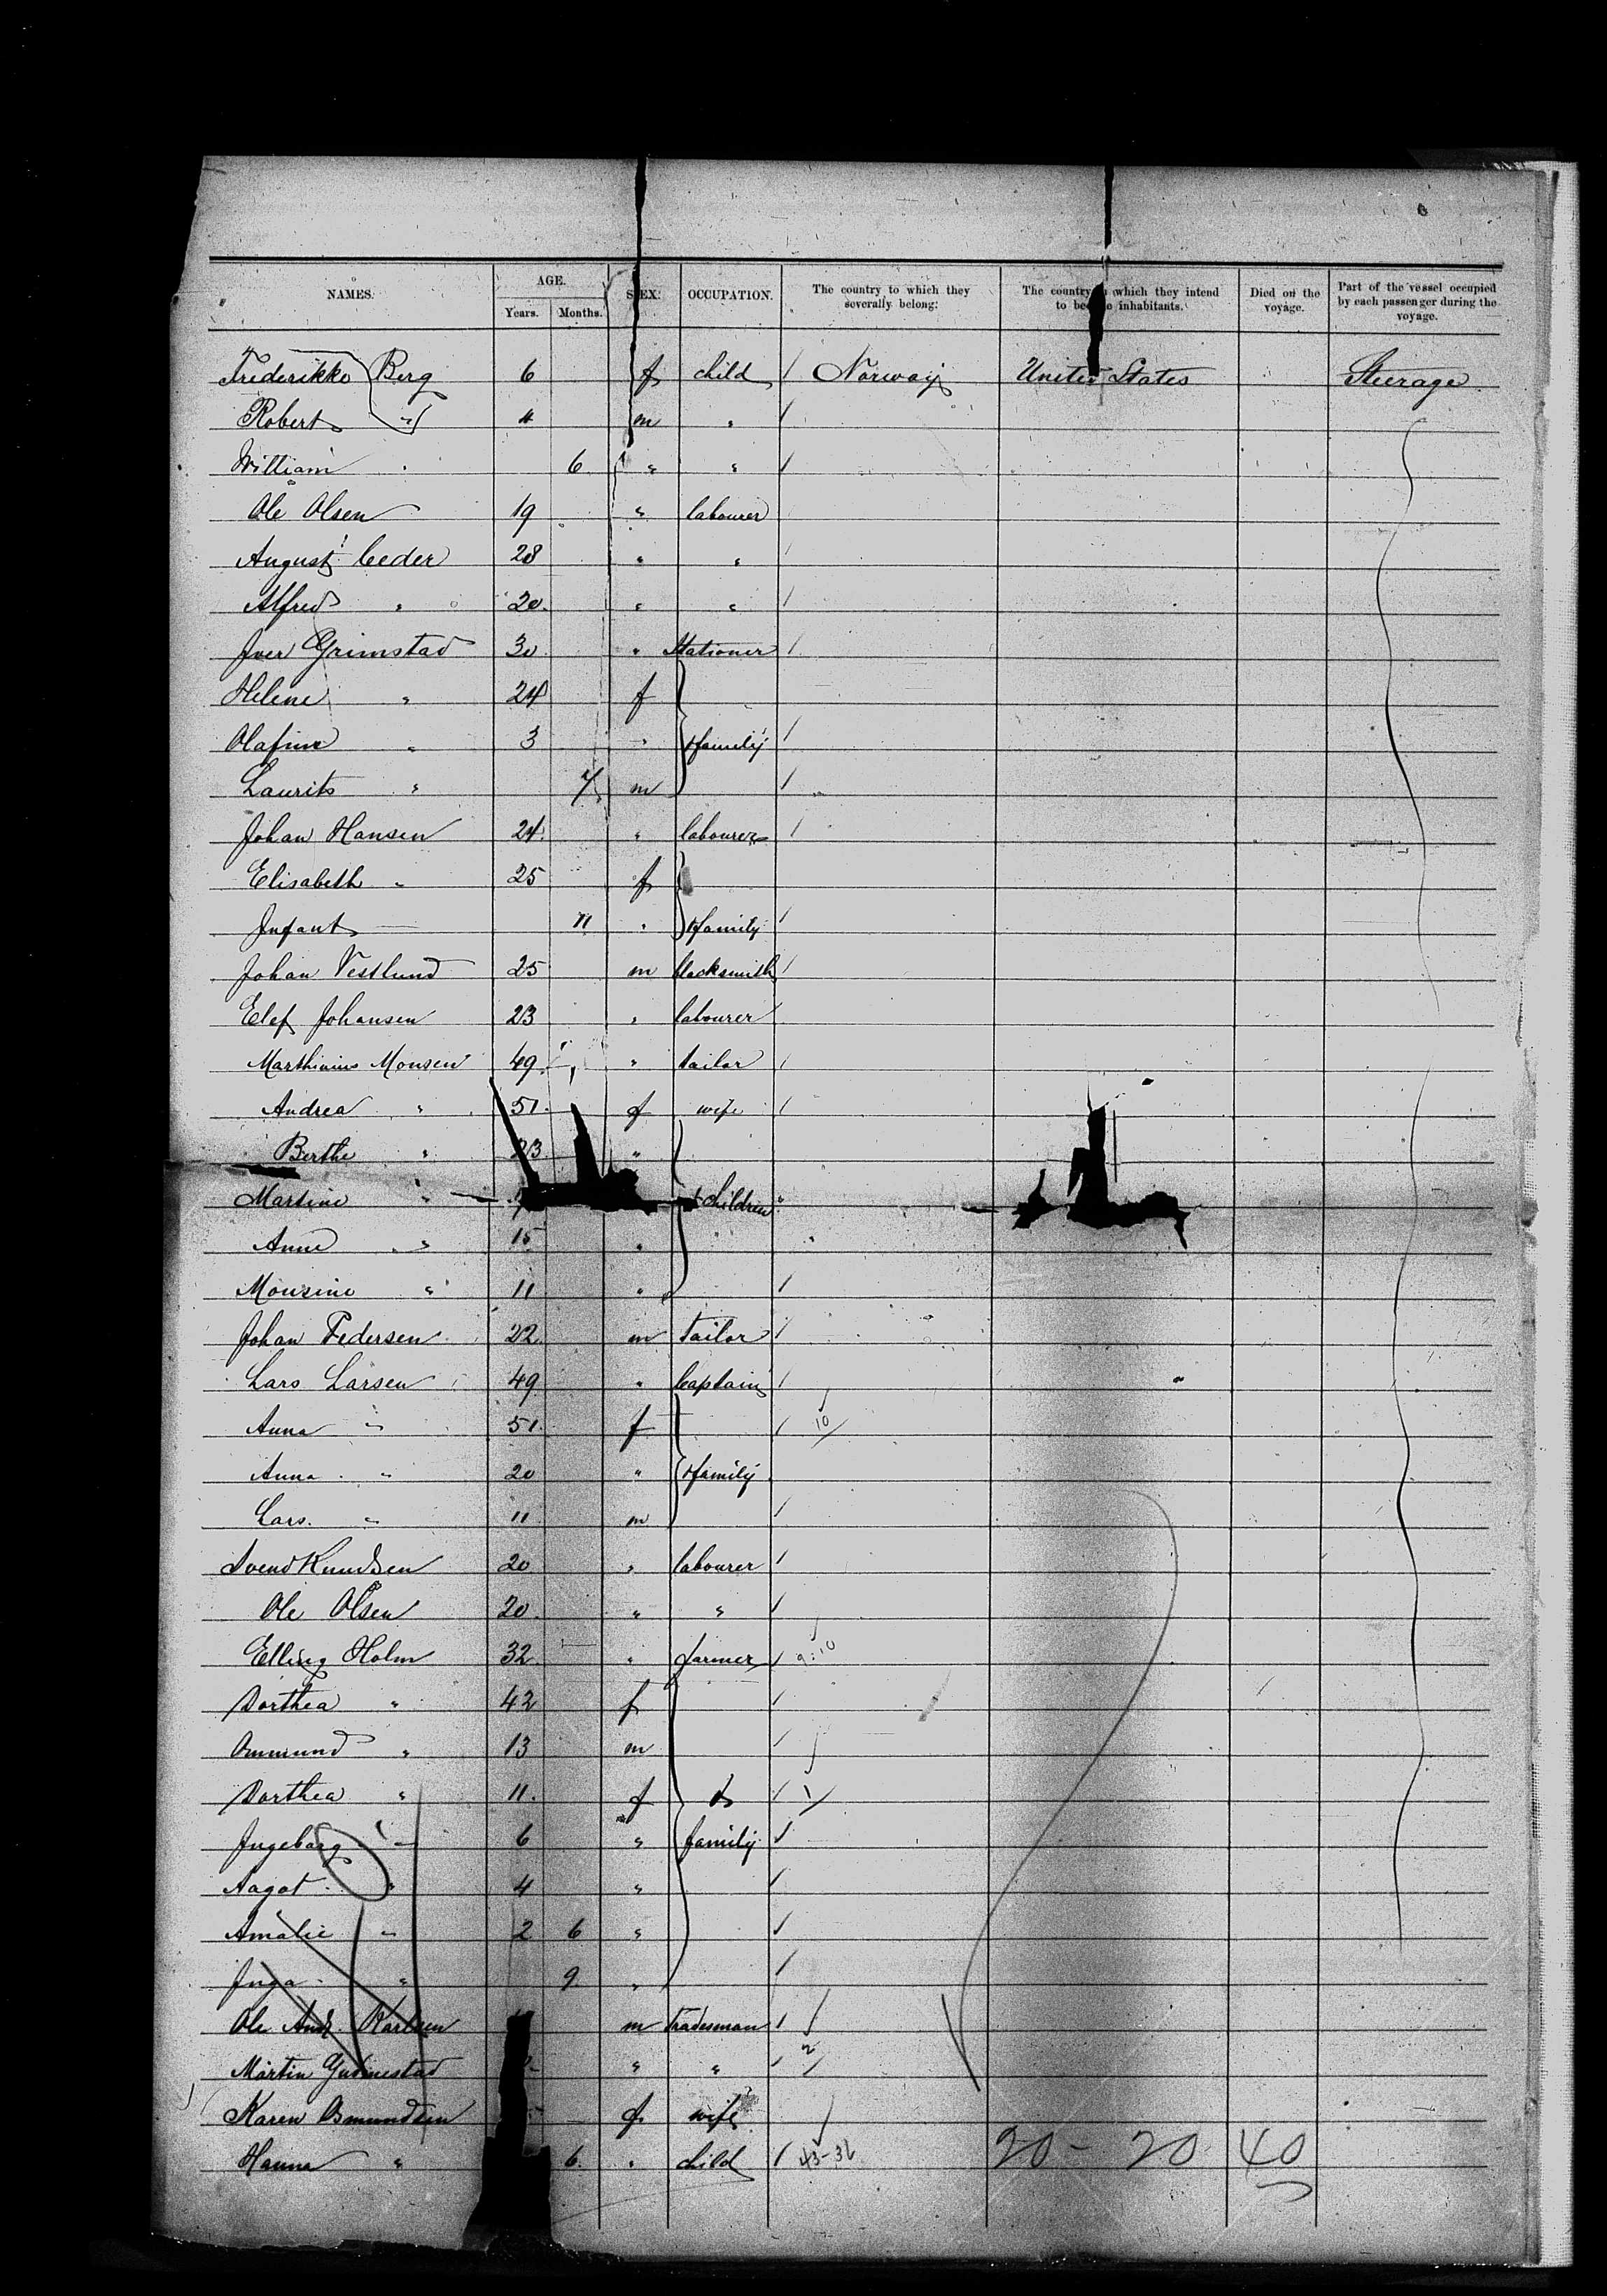 NAMES. AGE. SEX. OCCUPATION. The country to which they severally belong: The country which they intend to be inhabitants. Died on the voyage. Part of the vessel occupied by each passenger during the voyage.
Years. Months.
Frederikke Berg 6 f child / Norway United States Steerage
Robert " 4 m " /
William " 6 " " /
Ole Olsen 19 " labourer
August Ceder 28 " " /
Alfred " 20 " " /
Iver Grimstad 30 " Stationer /
Helene " 24 f
Olafine " 3 " family /
Laurits " 7 m /
Johan Hansen 24 " labourer /
Elisabeth " 25 f
Infant 11 " family /
Johan Vestlund 25 m blacksmith /
Elef Johansen 23 " labourer
Marthinius Monsen 49 " tailor /
Andrea " 51 f wife /
Berthe " 23 "
Martine " children "
Anne " 15 "
Monsine " 11 " /
Johan Pedersen 22 m tailor /
Lars Larsen 49 " Captain /
Anna " 51 f / 10
Anna " 20 " family
Lars " 11 m /
Svend Knudsen 20 " labourer /
Ole Olsen 20 " " /
Elling Holm 32 " farmer / 9:10
Dorthea " 42 f /
Ommund " 13 m /
Dorthea " 11 f / 1/
Ingeborg " 6 " family /
Aagot " 4 " /
Amalie " 2 6 " /
Inga " 9 " /
Ole Andr. Karlsen m tradesman /
Martin " " / 2/
Karen Osmundsen f wife
Hanna " 6 " child / 43-36 20 - 20 40